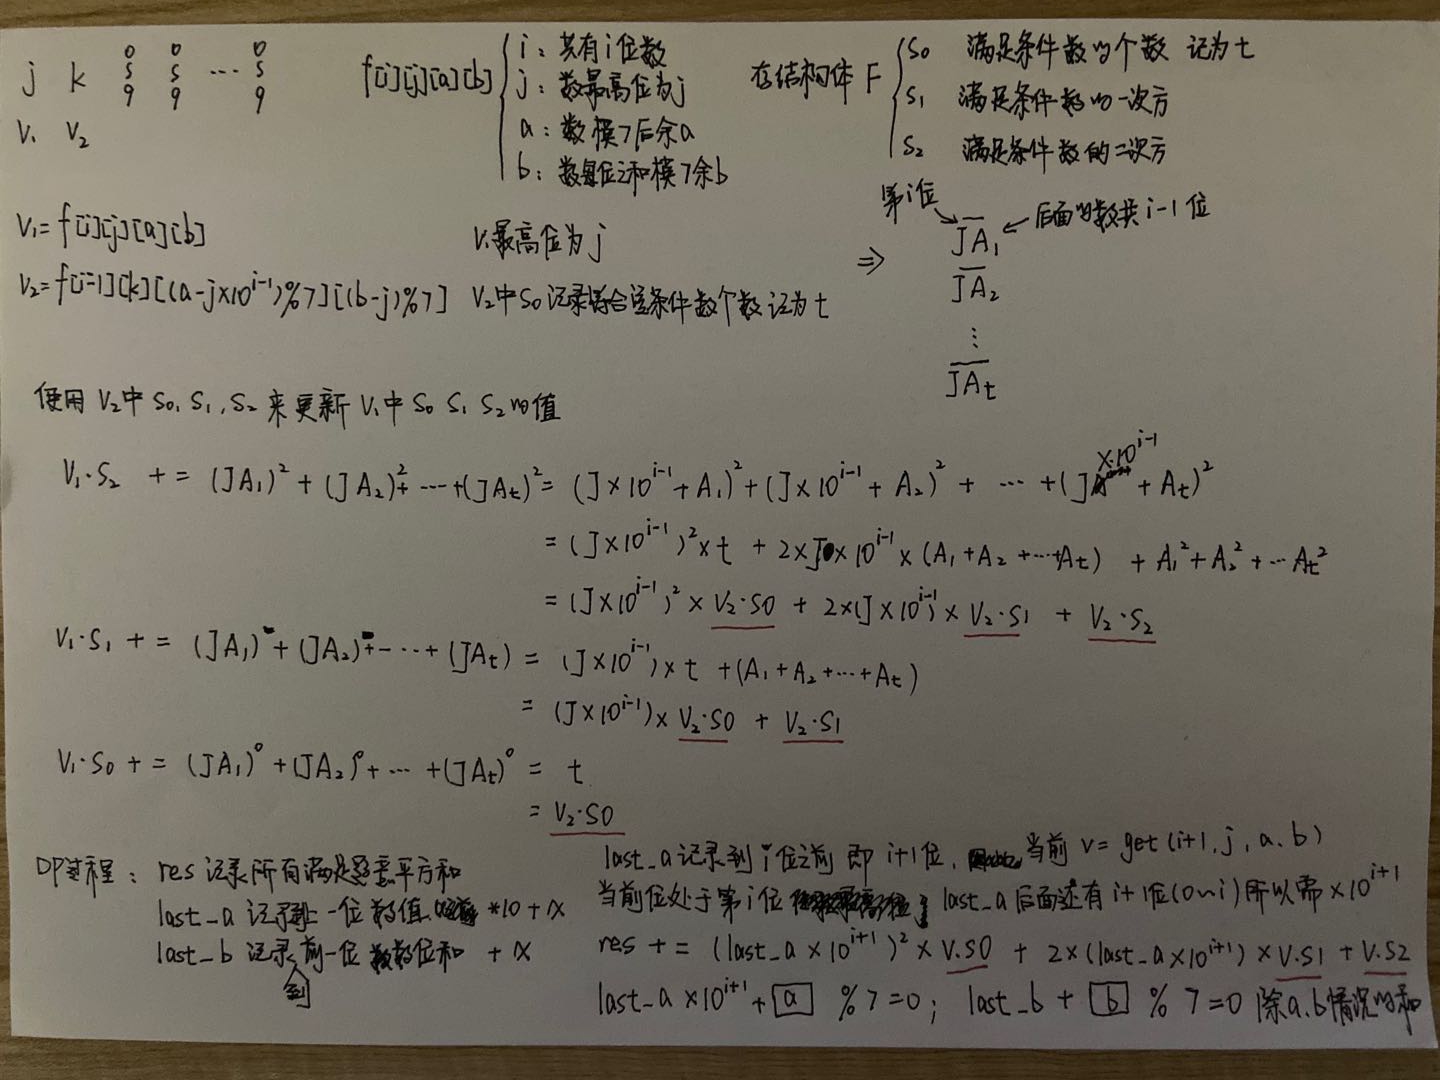 j k 0~9 0~9 … 0~9
V₁ V₂
f[i][j][a][b]
i：共有i位数
j：数最高位为j
a：数模7后余a
b：数每位之和模7余b
在结构体F
S0 满足条件数的个数 记为t
S1 满足条件数的一次方
S2 满足条件数的二次方
V₁=f[i][j][a][b] V₁最高位为j
V₂=f[i-1][k][(a-j×10^{i-1})%7][(b-j)%7] V₂中S0记录符合条件数个数 记为t
⇒
第i位 JA₁ ← 后面的数共i-1位
JA₂
⋮
JAt
使用V₂中S0,S1,S2来更新V₁中S0 S1 S2的值
V₁·S2 += (JA₁)² + (JA₂)² + … + (JAt)² = (J×10^{i-1}+A₁)² + (J×10^{i-1}+A₂)² + … + (J×10^{i-1}+At)²
= (J×10^{i-1})²×t + 2×J×10^{i-1}×(A₁+A₂+…+At) + A₁²+A₂²+…At²
= (J×10^{i-1})²×V₂·S0 + 2×(J×10^{i-1})×V₂·S1 + V₂·S2
V₁·S1 += (JA₁) + (JA₂) + … + (JAt) = (J×10^{i-1})×t + (A₁+A₂+…+At)
= (J×10^{i-1})×V₂·S0 + V₂·S1
V₁·S0 += (JA₁)⁰ + (JA₂)⁰ + … + (JAt)⁰ = t
= V₂·S0
DP过程：res 记录所有满足题意平方和
last_a 记录到上一位数值 *10+x
last_b 记录到前一位数数位和 +x
last_a记录到i位之前 即i+1位， 当前 v=get(i+1,j,a,b)
当前位处于第i位 last_a后面还有i+1位(0~i)所以需×10^{i+1}
res += (last_a×10^{i+1})²×V.S0 + 2×(last_a×10^{i+1})×V.S1 + V.S2
last_a×10^{i+1}+a %7=0； last_b+b %7=0 除a.b情况的和